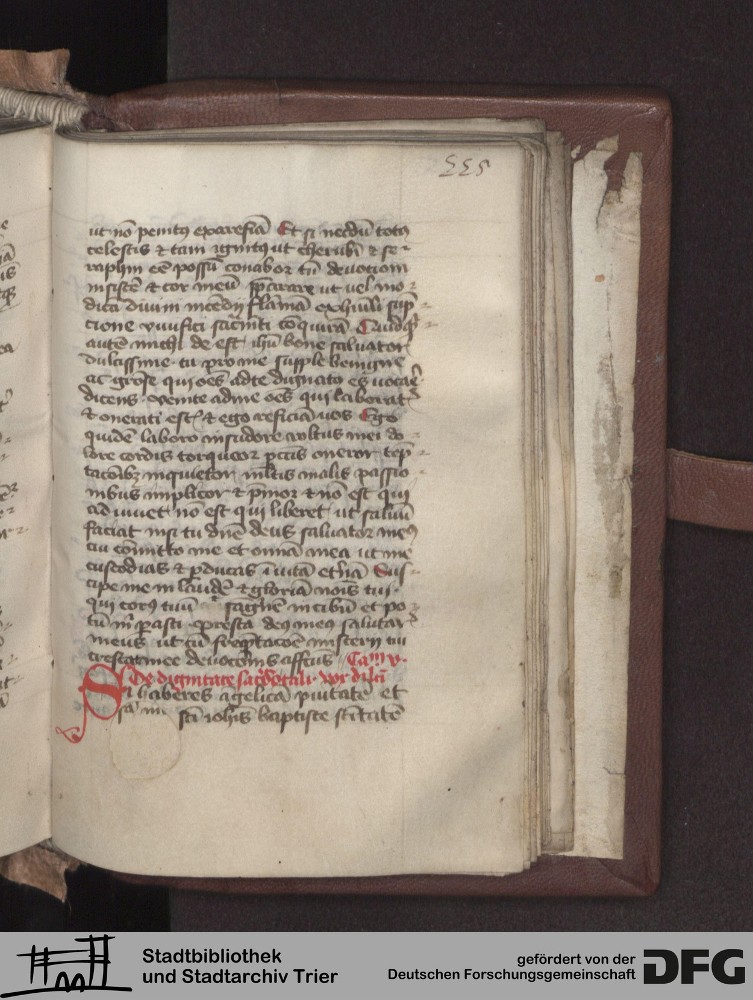 225
ut nō penitꝰ exarefiā Et si necdū totꝰ
celestis & tam ignitꝰ ut cherubī & se
raphim eē possū conabor tn̄ deuotioni
insistē & cor meū p̄parare ut vel mo
dicā diuini incendij flāmā ex hūili sūp
cione viuifici sac̄mti cōquirā Quidqͥd
autē michi de est ihū bone saluator
dulcissime tu pro me supple benigne
ac grōse qui oēs ad te dignatꝰ es uocāe
dicens venite ad me oēs qui laborat̉
& onerati est̉ & ego reficiā uos Ego
quidē laboro in sudore vultus mei do
lore cordis torqueor pc̄tis oneror tēp
tacōibꝫ inquietor ml̄tis malis passio
nibus implicor & p̄mor & nō est qui
adiuuet nō est qui liberet ut saluū
faciat nisi tu dn̄e deus saluator meꝰ
cui cōmitto me et omnia mea ut me
custodias & p̱ducas ī uitā et̉nā Sus
cipe me in laudē & gloriā nōis tui
Qui corpꝰ tuū sagūinē in cibū et po
tū m̄ parasti p̄resta deꝰ meꝰ salutar̉
meus ut cū freq̄ntacōe misterij tui
crescat mee deuocōnis affcūs Caᵐ v
De dignitate sac̄dotali vox dilc̄i
Si haberes āgelicā puritatē et
scī iohīs baptiste sc̄itatē
Stadtbibliothek
und Stadtarchiv Trier
gefördert von der
Deutschen Forschungsgemeinschaft
DFG